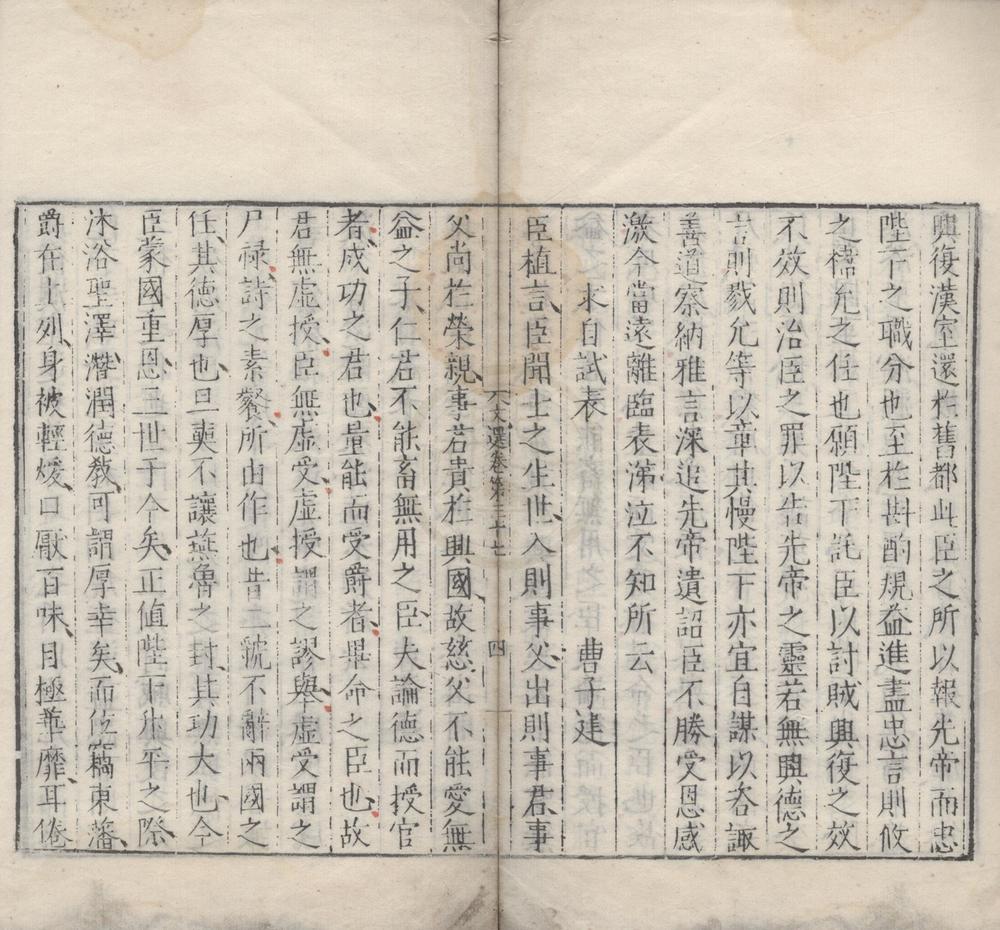 興復漢室還於舊都此臣之所以報先帝而忠
陛下之職分也至於斟酌規益進盡忠言則攸
之禕允之任也願陛下託臣以討賊興復之效
不效則治臣之罪以告先帝之靈若無興德之
言則戮允等以章其慢陛下亦宜自謀以咨諏
善道察納雅言深追先帝遺詔臣不勝受恩感
激今當遠離臨表涕泣不知所云
求自試表 曹子建
臣植言臣聞士之生世入則事父出則事君事
文選卷第三十七 四
父尚於榮親事君貴於興國故慈父不能愛無
益之子仁君不能畜無用之臣夫論德而授官
者成功之君也量能而受爵者畢命之臣也故
君無虛授臣無虛受虛授謂之謬舉虛受謂之
尸祿詩之素餐所由作也昔二虢不辭兩國之
任其德厚也旦奭不讓燕魯之封其功大也今
臣蒙國重恩三世于今矣正值陛下升平之際
沐浴聖澤潛潤德教可謂厚幸矣而位竊東藩
爵在上列身被輕煖口厭百味目極華靡耳倦